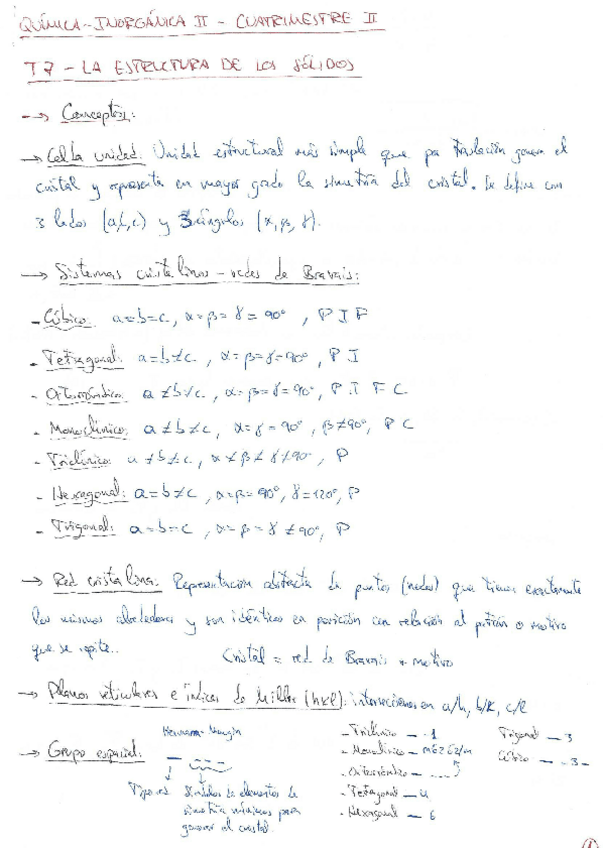 QUÍMICA-INORGÁNICA II - CUATRIMESTRE II
T7 - LA ESTRUCTURA DE LOS SÓLIDOS
→ Conceptos:
→ Celda unidad: Unidad estructural más simple que por traslación genera el
cristal y representa en mayor grado la simetría del cristal. Se define con
3 lados (a,b,c) y 3 ángulos (α, β, γ).
→ Sistemas cristalinos - redes de Bravais:
- Cúbico: a=b=c, α=β=γ=90°, P I F
- Tetragonal: a=b≠c, α=β=γ=90°, P I
- Ortorrómbico: a≠b≠c, α=β=γ=90°, P I F C
- Monoclínico: a≠b≠c, α=γ=90°, β≠90°, P C
- Triclínico: a≠b≠c, α≠β≠γ≠90°, P
- Hexagonal: a=b≠c, α=β=90°, γ=120°, P
- Trigonal: a=b=c, α=β=γ≠90°, P
→ Red cristalina: Representación abstracta de puntos (nodos) que tienen exactamente
los mismos alrededores y son idénticos en posición con relación al patrón o motivo
que se repite..
Cristal = red de Bravais + motivo
→ Planos reticulares e índices de Miller (hkl): intersecciones en a/h, b/k, c/l
→ Grupo espacial:
Hermann-Mauguin
Tipo red
Símbolos de elementos de
simetría mínimos para
generar el cristal.
- Triclínico — 1
- Monoclínico — m ó 2 ó 2/m
- Ortorrómbico — ...
- Tetragonal — 4
- Hexagonal — 6
Trigonal — 3
Cúbico — . 3 -
1